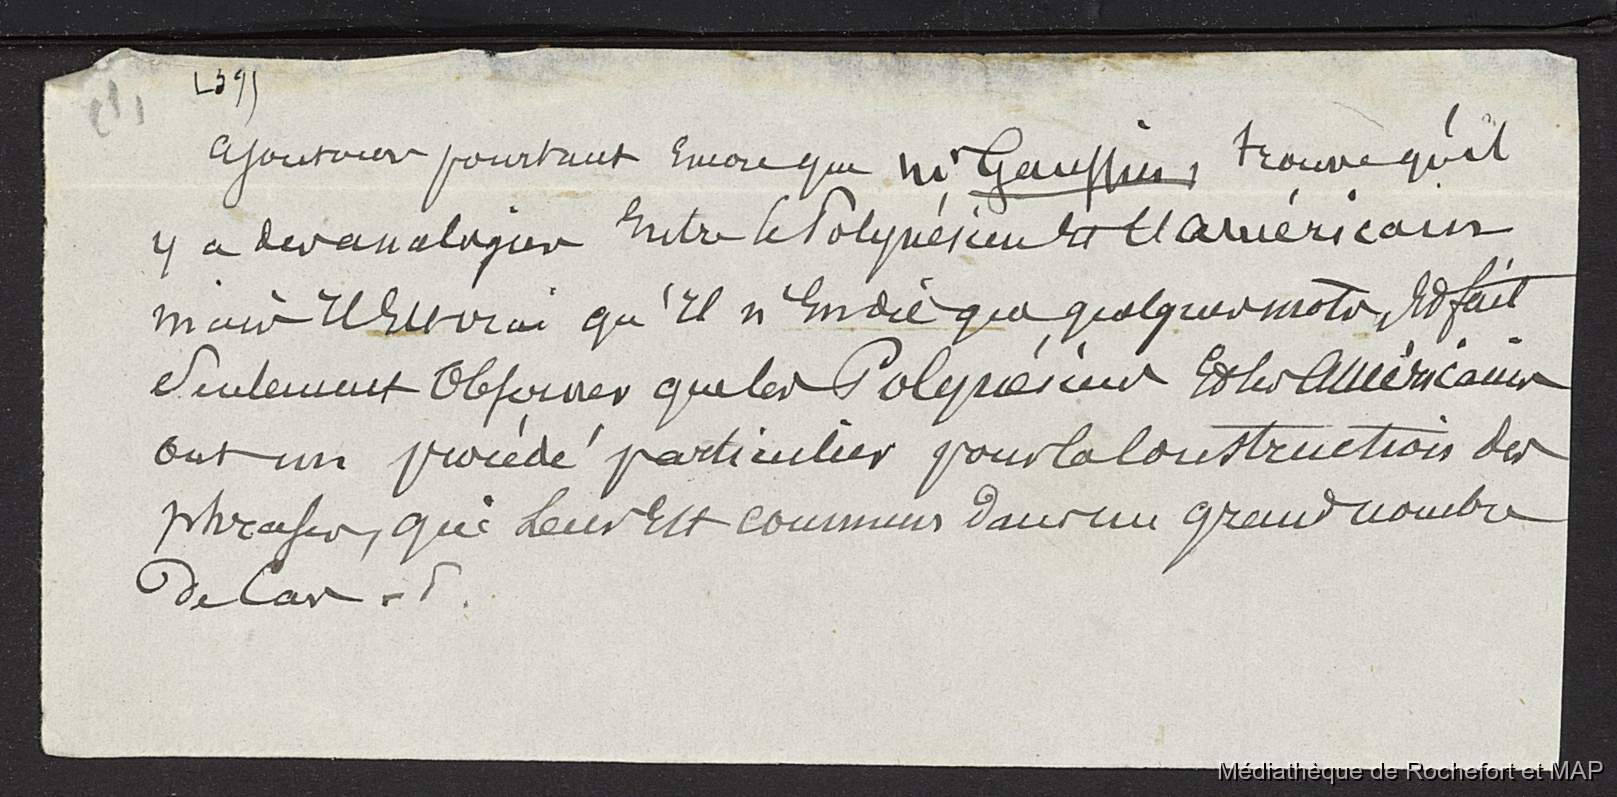 (39)
ajoutons pourtant encore que Mr Gaussin, trouve qu'il
y a des analogies entre le Polynésien et l'américain
mais il est vrai qu'il n'en die que quelques mots, et fait
seulement observer que les Polynésiens et les américains
ont un procédé particulier pour la construction des
phrases, qui leur est commun dans un grand nombre
de cas.
Médiathèque de Rochefort et MAP